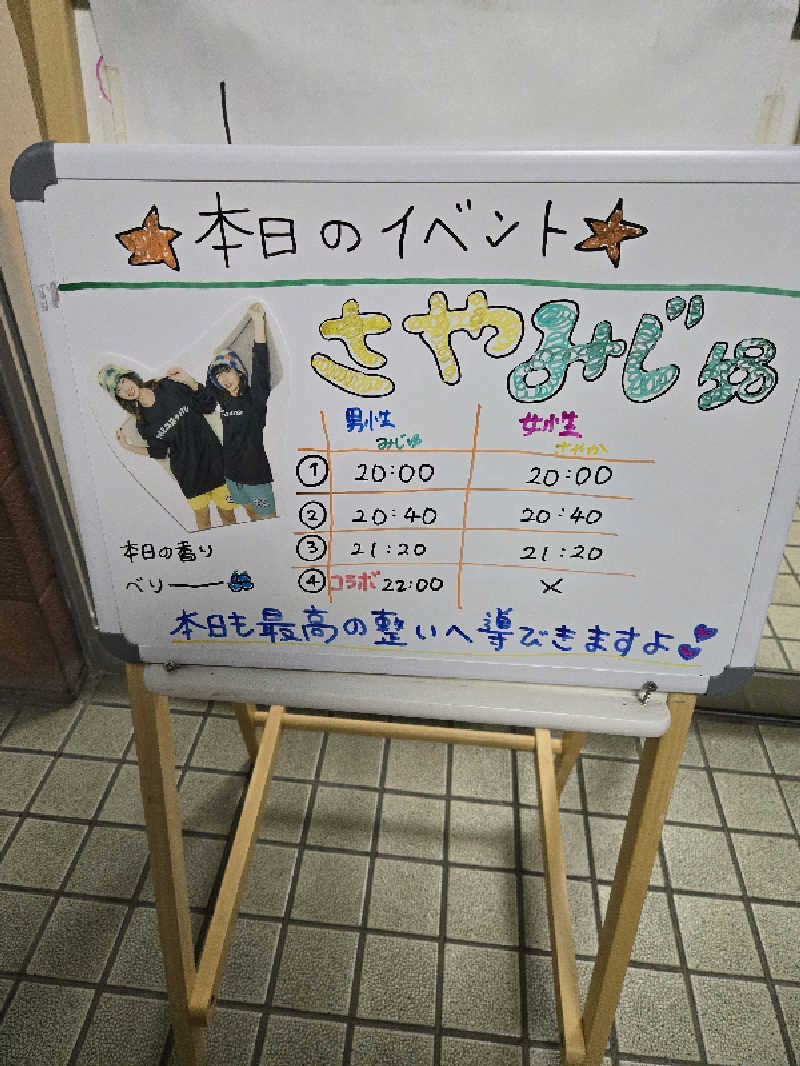 ★本日のイベント★
さやみじゅ
男性 女性
みじゅ さやか
① 20:00 20:00
② 20:40 20:40
③ 21:20 21:20
④ コラボ 22:00 ×
本日の香り
ベリー
本日も最高の整いへ導びきますよ